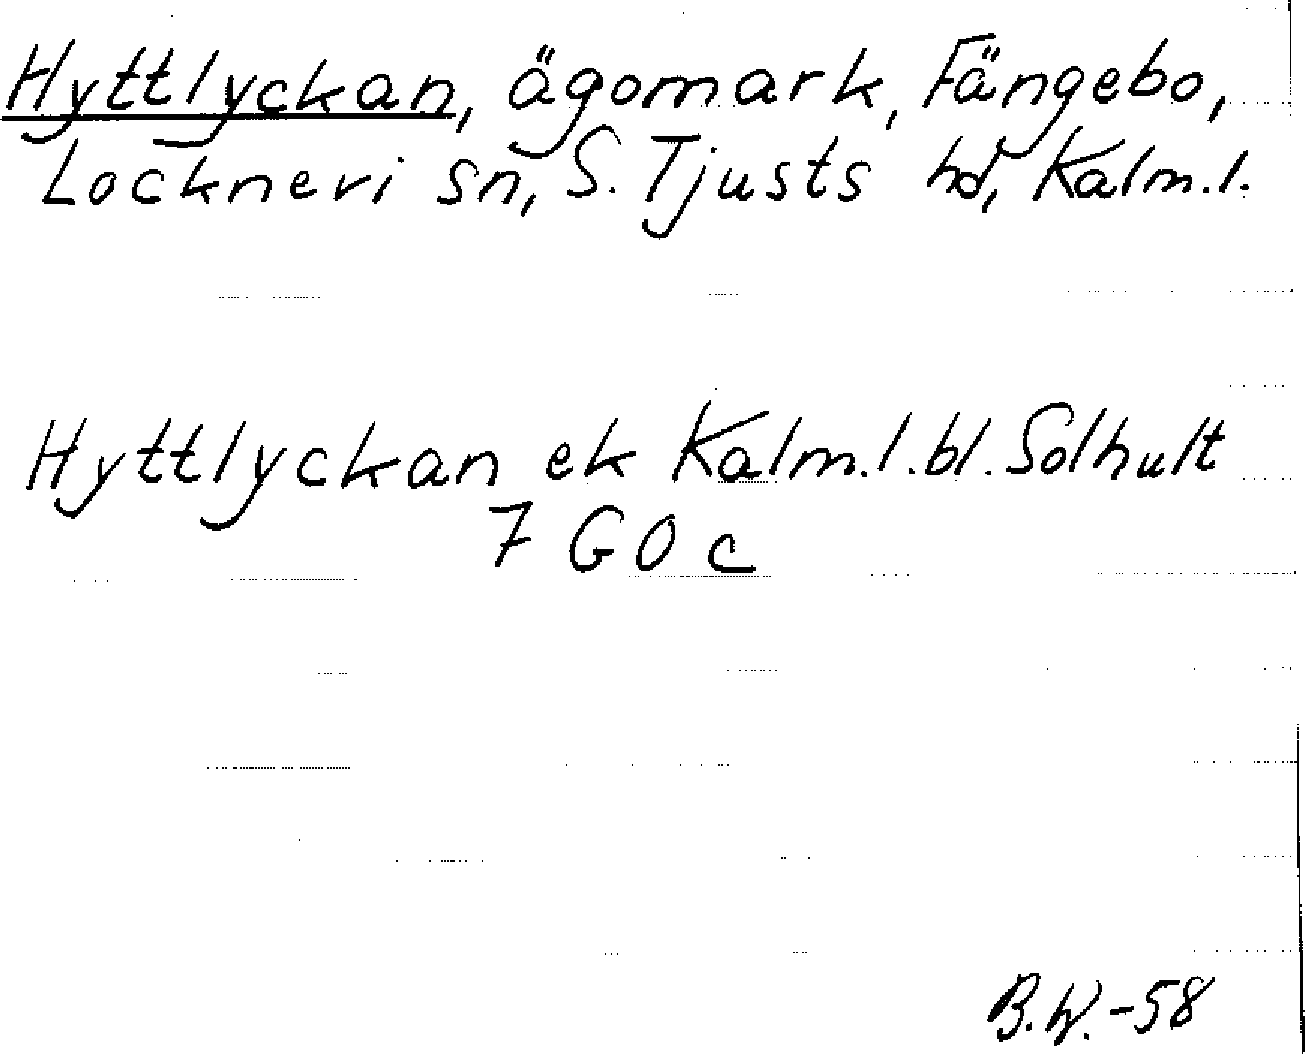 Hyttlyckan, ägomark, Fängebo,
Lockneri sn, S. Tjusts hd, Kalm.l.
Hyttlyckan ek Kalm.l.bl. Solhult
7 G 0 c
B.W.-58